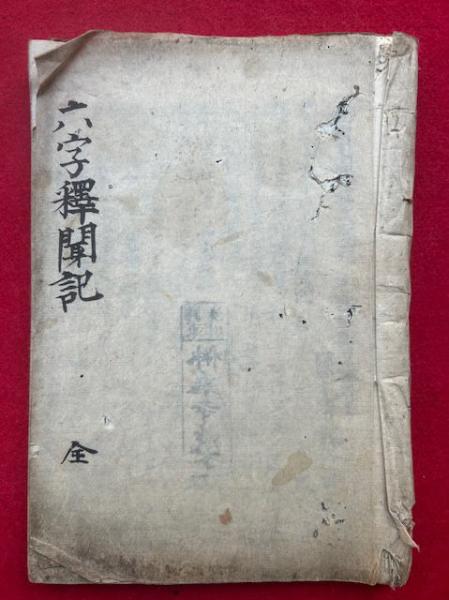 六字釋聞記
全